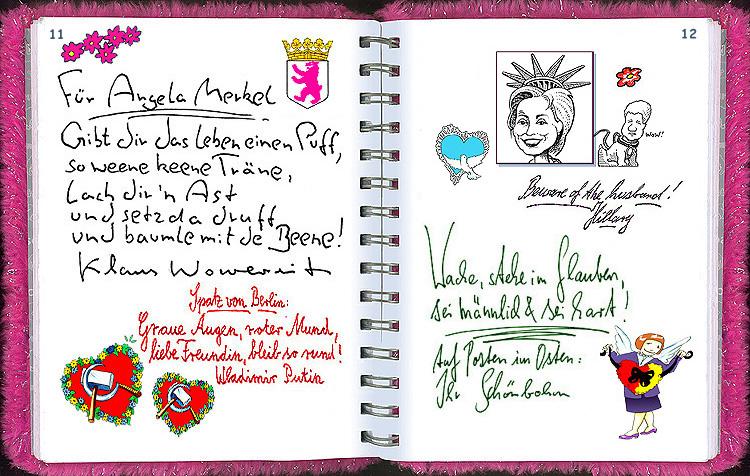 11
Für Angela Merkel
Gibt dir das Leben einen Puff,
so weene keene Träne,
Lach dir'n Ast
und setz da druff
und baumle mit de Beene!
Klaus Wowereit
Spatz von Berlin:
Graue Augen, roter Mund,
liebe Freundin, bleib so rund!
Wladimir Putin
12
WOW!
Beware of the husband!
Hillary
Wache, stehe im Glauben,
sei männlich & sei hart!
Auf Posten im Osten:
Ihr Schönbohm